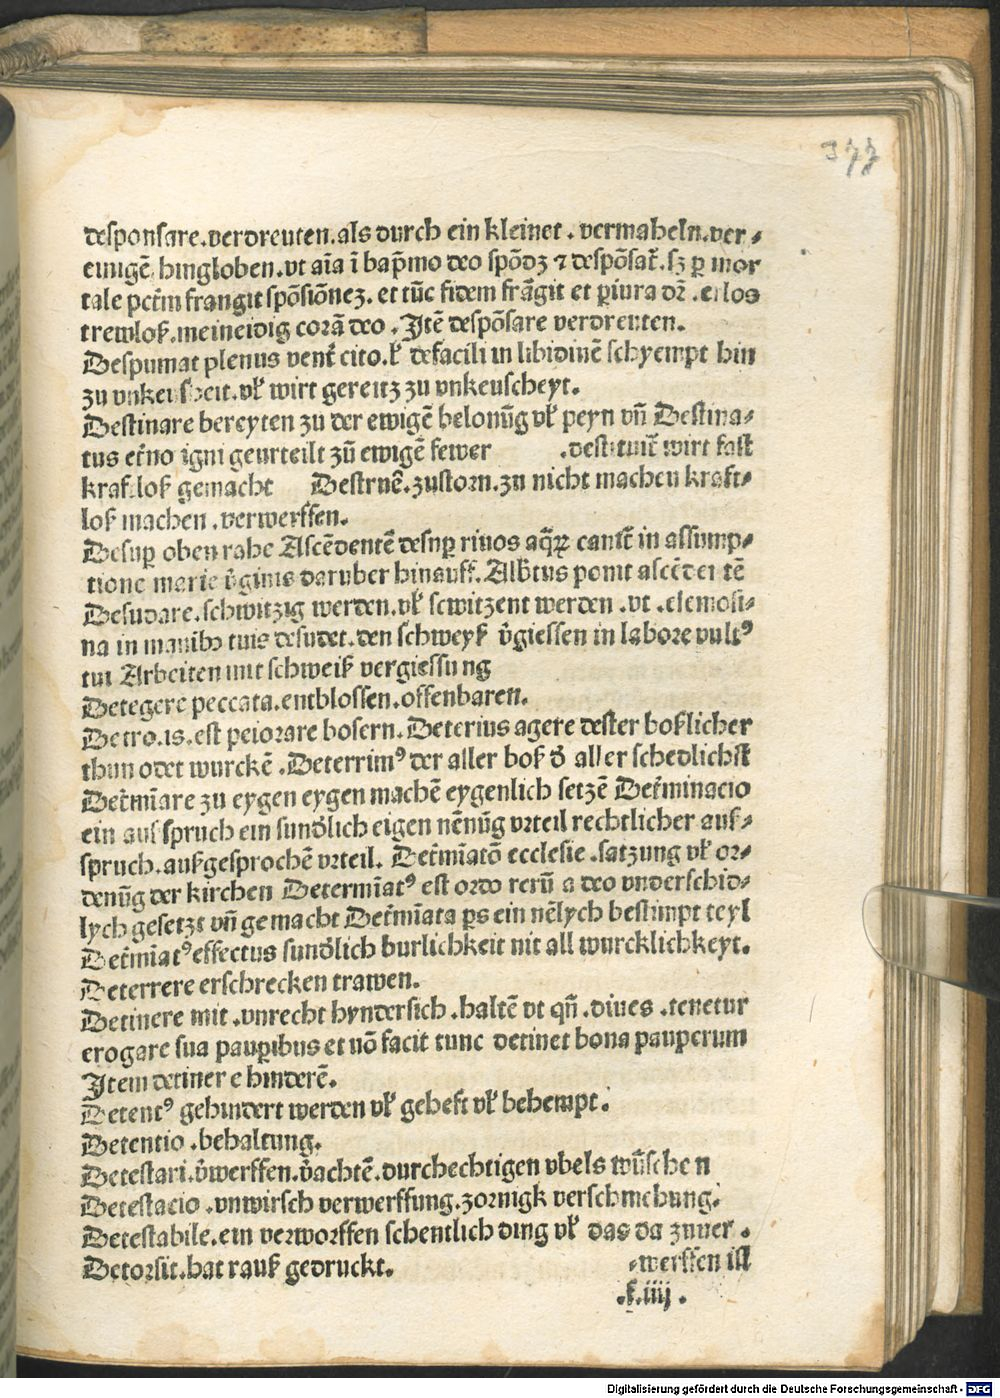 377
desponsare.verdreuten.als durch ein kleinet. vermaheln.ver⸗
einigē. hingloben.vt aīa ī bap̄mo deo spōdꝫ ⁊ despōsat̄.sꝫ ꝑ mor
tale pctm̄ frangit spōsiōneꝫ. et tūc fidem frāgit et ꝑiura dr̄ .erlos
trewloß.meineidig corā deo .Itē despōsare verdreuten.
Despumat plenus vent̄ cito.ſ defacili in libidinē schyempt hin
zu vnkeuscheit.vl̓ wirt gereitz zu vnkeuscheyt.
Destinare bereyten zu der ewigē belonūg vl̓ peyn vn̄ Destina⸗
tus et̄no igni geurteilt zū ewigē fewer .destituit̄ wirt fast
kraftloß gemacht Destruē.zustorn.zu nicht machen kraft⸗
loß machen .verwerffen.
Desuꝑ oben rabe Ascēdentē desuꝑ riuos aq̄ꝝ cant̄ in assump⸗
tione marie v̓ginis daruber hinauff. Alb̓tus ponit ascēdentē
Desudare.schwitzig werden.vl̓ scwitzent werden .vt .elemosi⸗
na in manibꝰ tuis desudet.den schweyß v̓giessen in labore vultꝰ
tui Arbeiten mit schweiß vergiessung
Detegere peccata.entblossen.offenbaren.
Detro.is.est peiorare bosern.Deterius agere dester boßlicher
thun odet wurckē .Deterrimꝰ der aller boß d̓ aller schedlichst
Det̓mīare zu eygen eygen machē eygenlich setzē Det̓minacio
ein ausspruch ein sund̓lich eigen nēnūg vrteil rechtlicher auß⸗
spruch.außgesprochē vrteil. Det̓mīatō ecclesie .satzung vl̓ or⸗
denūg der kirchen Determīatꝰ est ordo rerū a deo vnderschid⸗
lych gesetzt vn̄ gemacht Det̓mīata ꝑs ein nēlych bestimpt teyl
Det̓mīatꝰ effectus sund̓lich burlichkeit nit all wurcklichkeyt.
Deterrere erschrecken trawen.
Detinere mit .vnrecht hyndersich .haltē vt qn̄ .diues .tenetur
erogare sua pauꝑibus et nō facit tunc detinet bona pauperum
Item detinere hinderē.
Detentꝰ gehindert werden vl̓ geheft vl̓ behempt.
Detentio .behaltung.
Detestari.v̓werffen.v̓achtē.durchechtigen vbels wūschen
Detestacio .vnwirsch verwerffung.zornigk verschmehung.
Detestabile.ein verworffen schentlich ding vl̓ das da zuuer.
Detorsit.hat rauß gedruckt. ⸗werffen ist
.k.iiij.
Digitalisierung gefördert durch die Deutsche Forschungsgemeinschaft - DFG